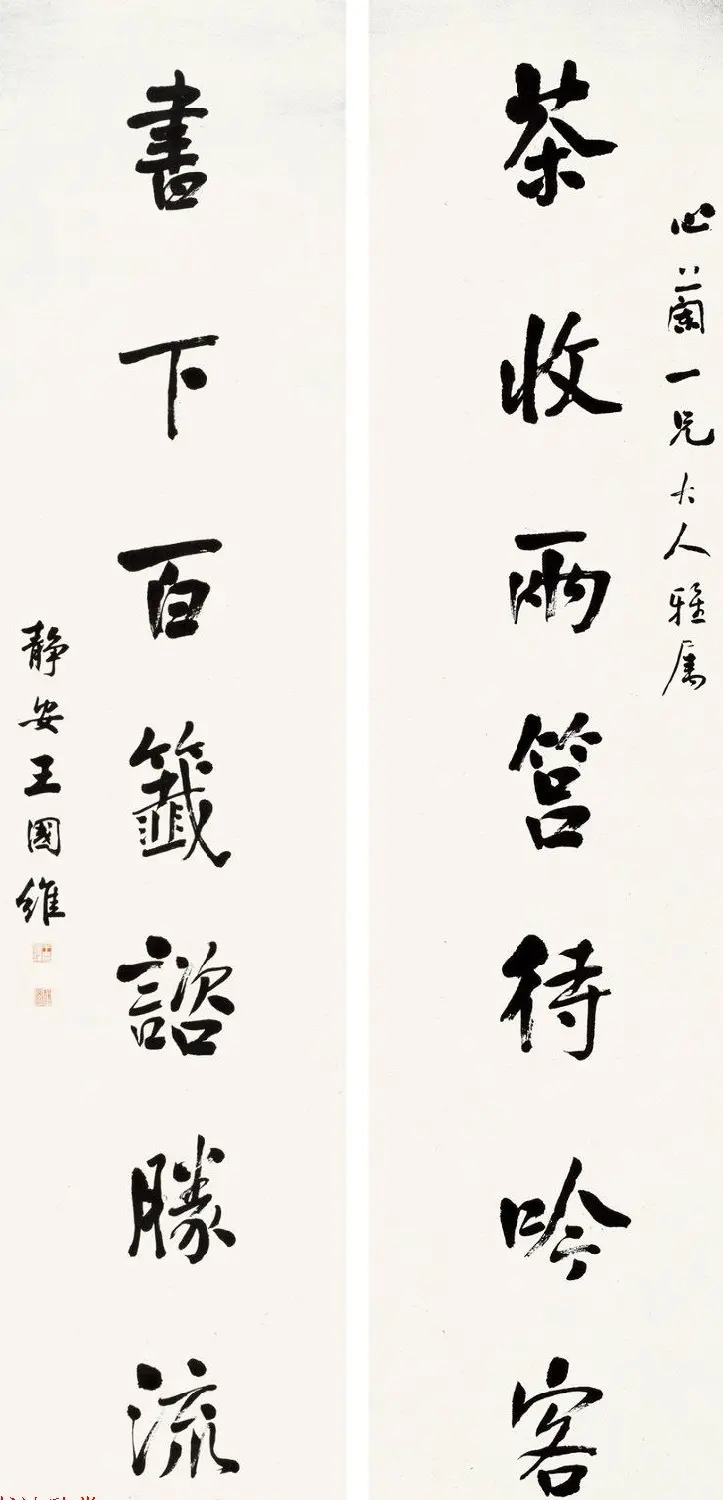 心蘭一兄大人雅属
茶收兩筥待吟客
書下百籤諮勝流
靜安王國維